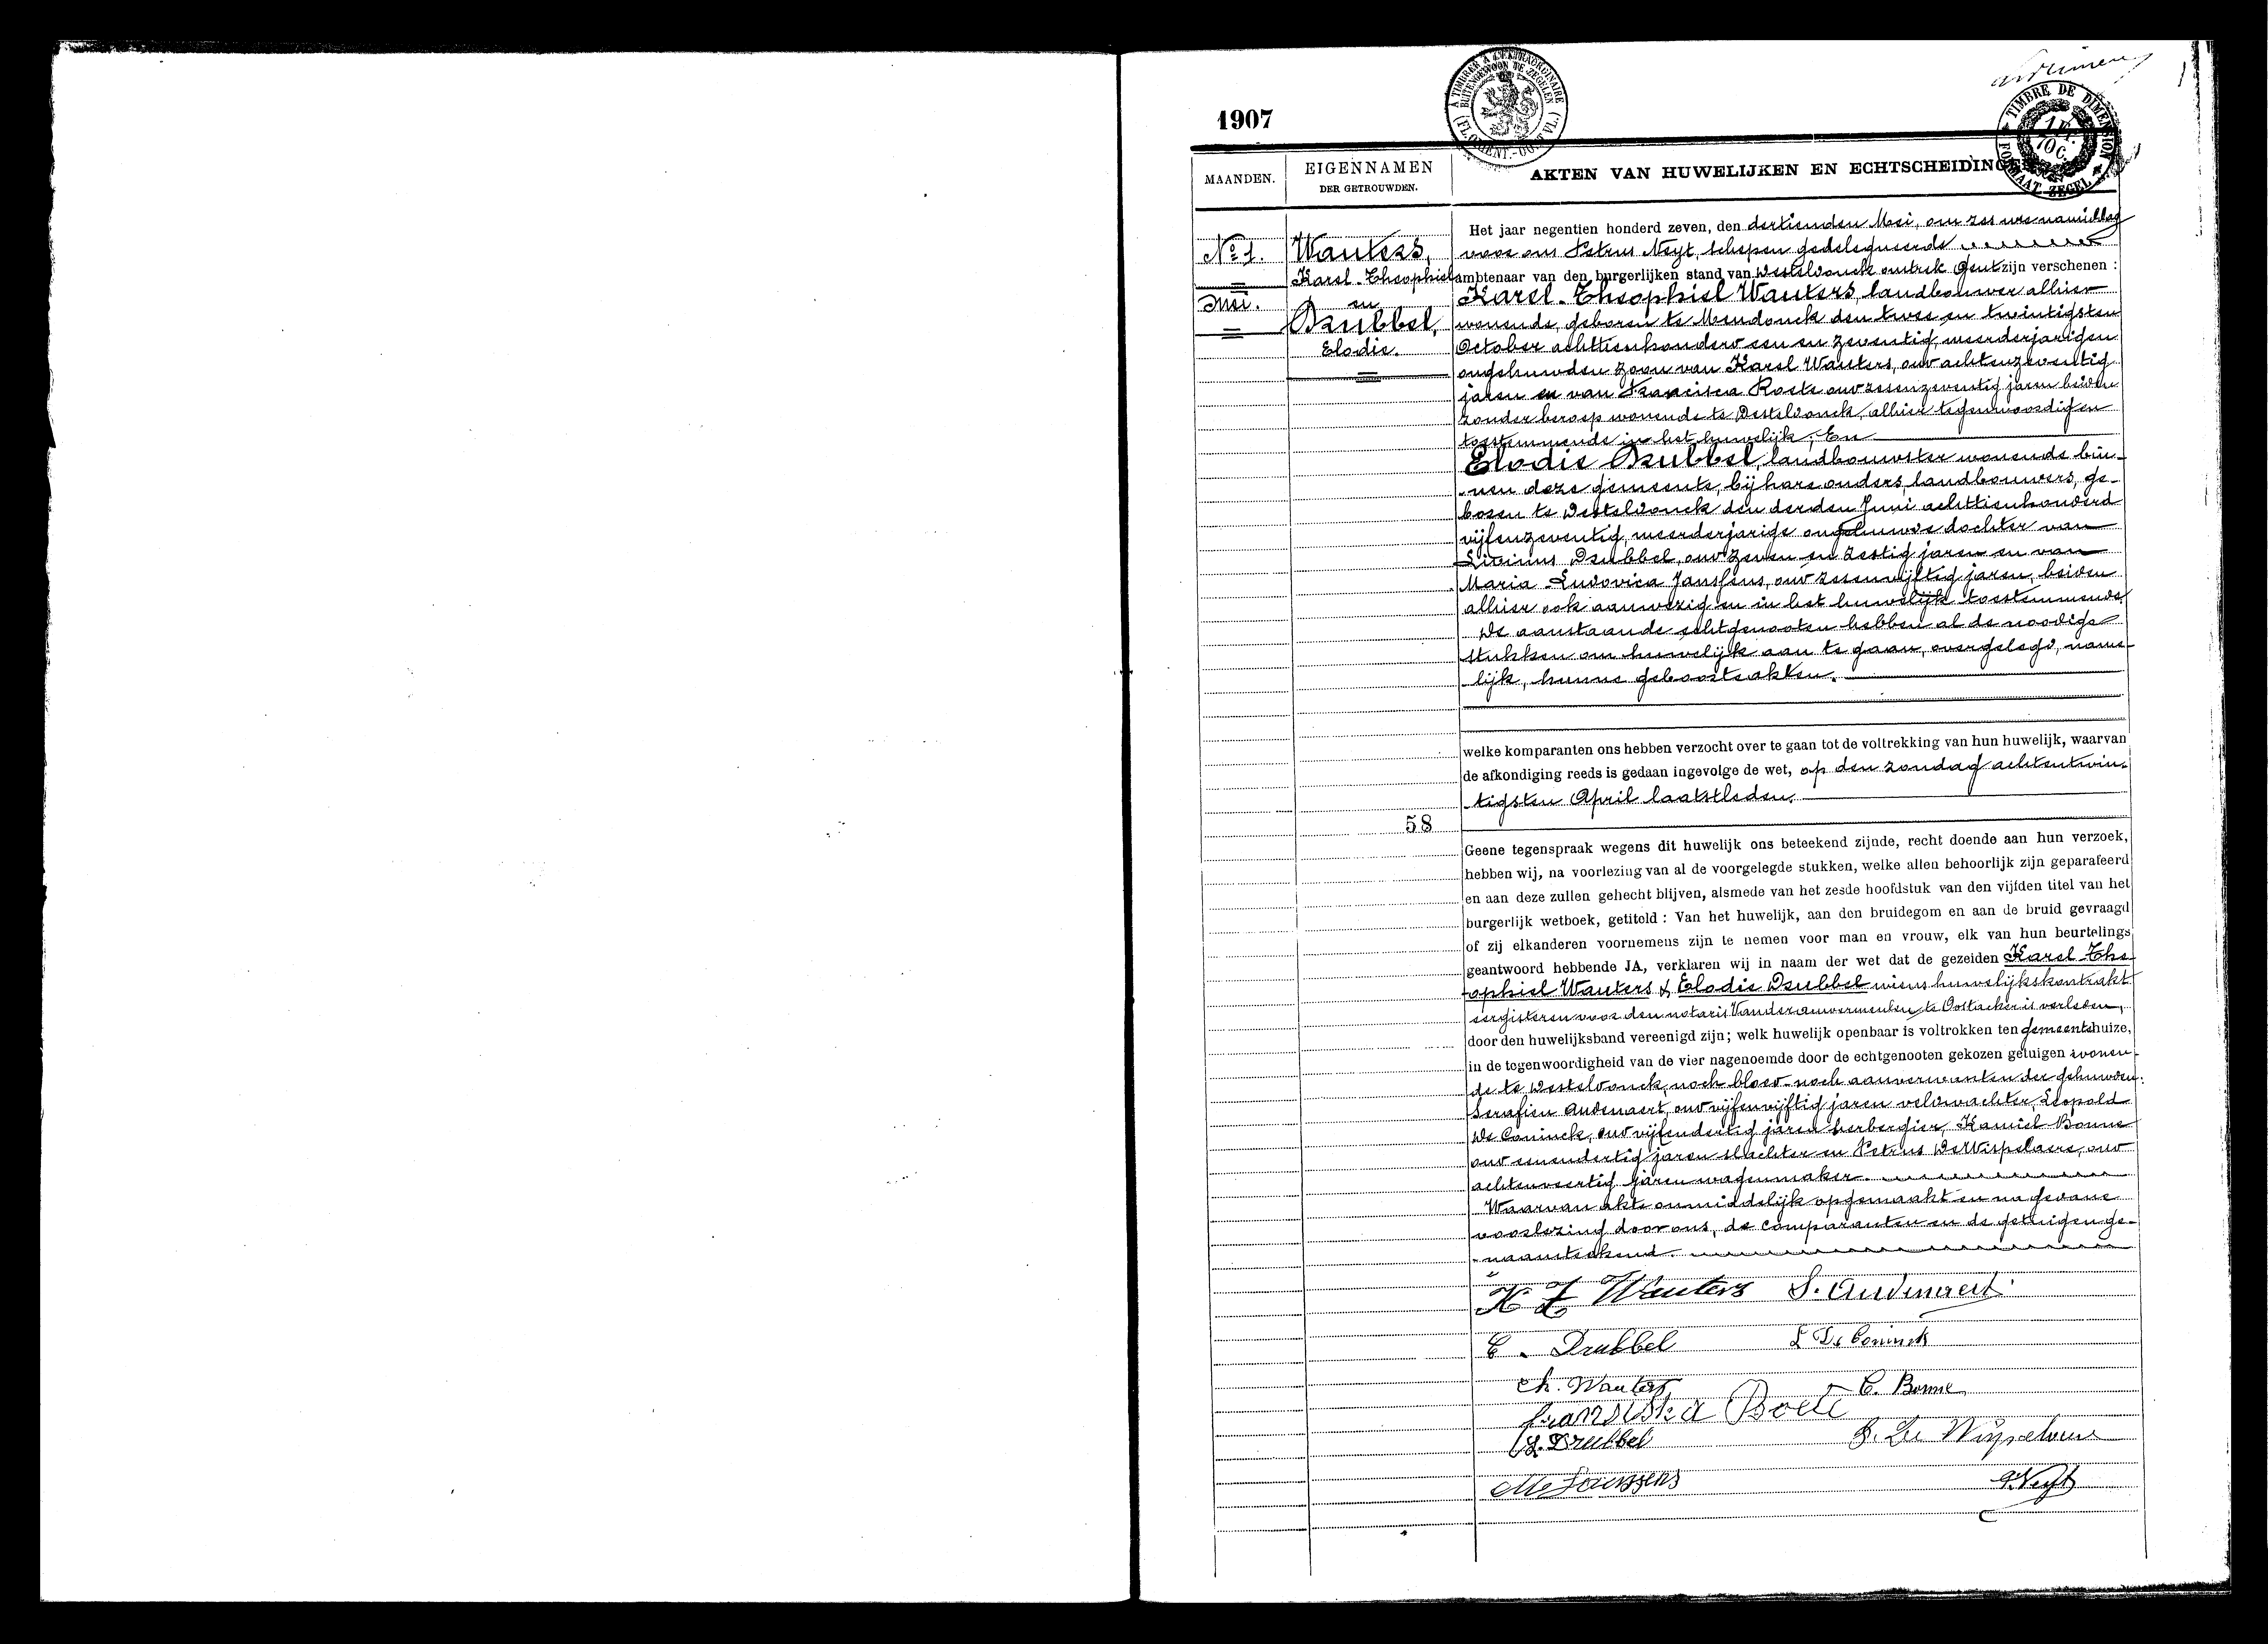 1907
A TIMBRER A L'EXTRAORDINAIRE
BUITENGEWOON TE ZEGELEN
(FL. ORIENT.-OOST VL.)
TIMBRE DE DIMENSION
1 Fr.
70 C.
FORMAAT ZEGEL
MAANDEN.
EIGENNAMEN
DER GETROUWDEN.
AKTEN VAN HUWELIJKEN EN ECHTSCHEIDINGE
No 1.
Mei.
Wauters,
Karel-Theophiel
en
Drubbel,
Elodie.
58
Het jaar negentien honderd zeven, den dertienden Mei, om zes ure namiddag
voor ons Petrus Neyt, schepen gedelegueerde
ambtenaar van den burgerlijken stand van Desteldonck omtrek Gent zijn verschenen :
Karel-Theophiel Wauters, landbouwer alhier
wonende, geboren te Mendonck den twee en twintigsten
October achttienhonderd een en zeventig, meerderjarigen
ongehuwden zoon van Karel Wauters, oud achtenzeventig
jaren en van Francisca Roete oud zessenzeventig jaren beiden
zonder beroep wonende te Desteldonck, alhier tegenwoordig en
toestemmende in het huwelijk; En
Elodie Drubbel, landbouwster wonende bin-
-nen deze gemeente, bij hare ouders, landbouwers, ge-
boren te Desteldonck den derden Juni achttienhonderd
vijfenzeventig, meerderjarige ongehuwde dochter van
Livinus Drubbel, oud zeven en zestig jaren en van
Maria Ludovica Janssens, oud zessenvijftig jaren, beiden
alhier ook aanwezig en in het huwelijk toestemmende.
De aanstaande echtgenooten hebben al de noodige
stukken om huwelijk aan te gaan, overgelegd, name-
lijk, hunne geboorteakten.
welke komparanten ons hebben verzocht over te gaan tot de voltrekking van hun huwelijk, waarvan
de afkondiging reeds is gedaan ingevolge de wet, op den zondag achtentwin-
tigsten April laatstleden.
Geene tegenspraak wegens dit huwelijk ons beteekend zijnde, recht doende aan hun verzoek,
hebben wij, na voorlezing van al de voorgelegde stukken, welke allen behoorlijk zijn geparafeerd
en aan deze zullen gehecht blijven, alsmede van het zesde hoofdstuk van den vijfden titel van het
burgerlijk wetboek, getiteld : Van het huwelijk, aan den bruidegom en aan de bruid gevraagd
of zij elkanderen voornemens zijn te nemen voor man en vrouw, elk van hun beurtelings
geantwoord hebbende JA, verklaren wij in naam der wet dat de gezeiden Karel The-
-ophiel Wauters & Elodie Drubbel wiens huwelijkskontrakt
eergisteren voor den notaris Vanderauwermeulen te Oostacker is verleden,
door den huwelijksband vereenigd zijn; welk huwelijk openbaar is voltrokken ten gemeentehuize,
in de tegenwoordigheid van de vier nagenoemde door de echtgenooten gekozen getuigen wonen-
de te Desteldonck, noch bloed- noch aanverwanten der gehuwden:
Serafien Audenaert, oud vijfenvijftig jaren veldwachter, Leopold
De Coninck, oud vijfendertig jaren herbergier, Kamiel Bonne
oud eenendertig jaren slachter en Petrus De Wispelaere, oud
achtenveertig jaren wagenmaker.
Waarvan akte onmiddelijk opgemaakt en na gedane
voorlezing door ons, de comparanten en de getuigen ge-
-naamteekend.
K T Wauters S. Audenaert
E. Drubbel L De Coninck
Ch. Wauters C. Bonne
fransiska Roete
L. Drubbel P. De Wispelaere
M L Janssens P. Neyt